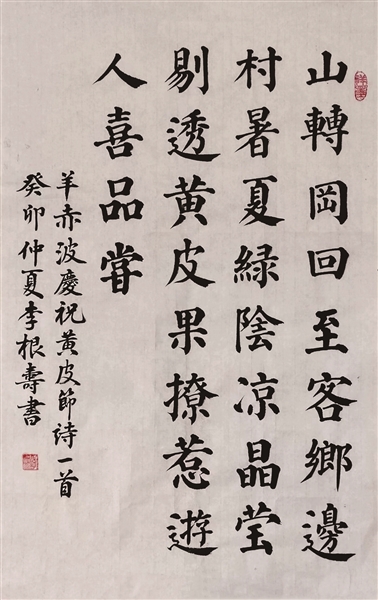 山轉岡回至客鄉邊
村暑夏綠陰凉晶莹
剔透黄皮果撩惹遊
人喜品嘗
羊赤波慶祝黄皮節詩一首
癸卯仲夏李根壽書